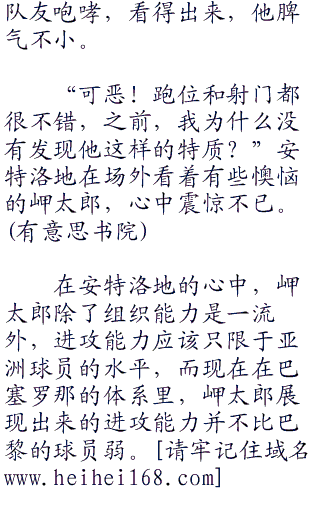 队友咆哮，看得出来，他脾
气不小。
“可恶！跑位和射门都
很不错，之前，我为什么没
有发现他这样的特质？”安
特洛地在场外看着有些懊恼
的岬太郎，心中震惊不已。
(有意思书院)
在安特洛地的心中，岬
太郎除了组织能力是一流
外，进攻能力应该只限于亚
洲球员的水平，而现在在巴
塞罗那的体系里，岬太郎展
现出来的进攻能力并不比巴
黎的球员弱。[请牢记住域名
www.heihei168.com]